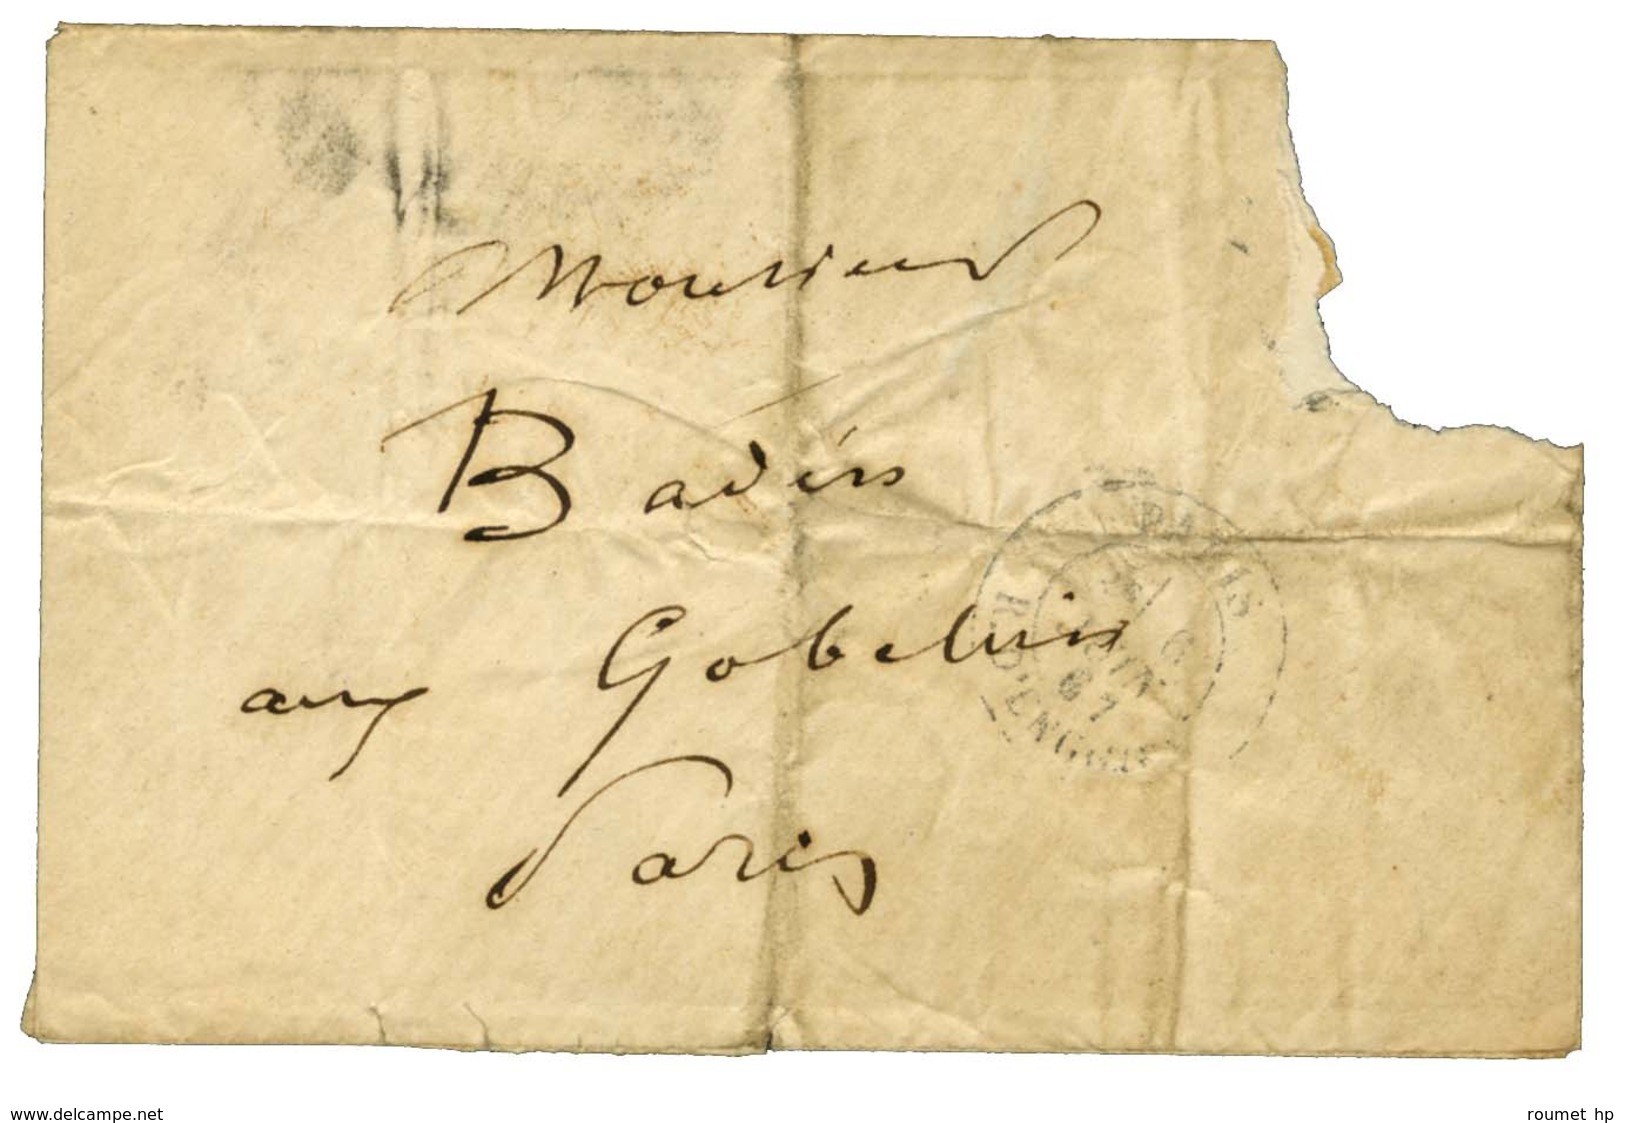 Monsieur
Badin
aux Gobelins
Paris
PARIS
R. D'ENGHIEN
6
JUIN
67
www.delcampe.net
roumet hp